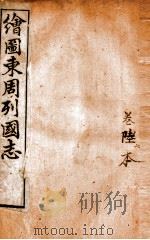 繪圖東周列國志
卷陸本